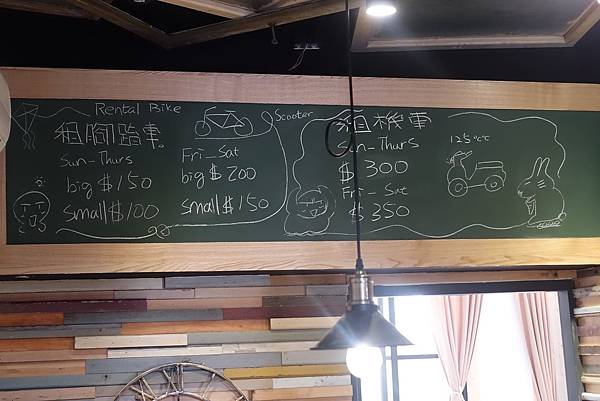 Rental Bike
租腳踏車
Sun-Thurs
big $150
small $100
Fri-Sat
big $200
small $150
Scooter
租機車
Sun-Thurs
$300
Fri-Sat
$350
125cc